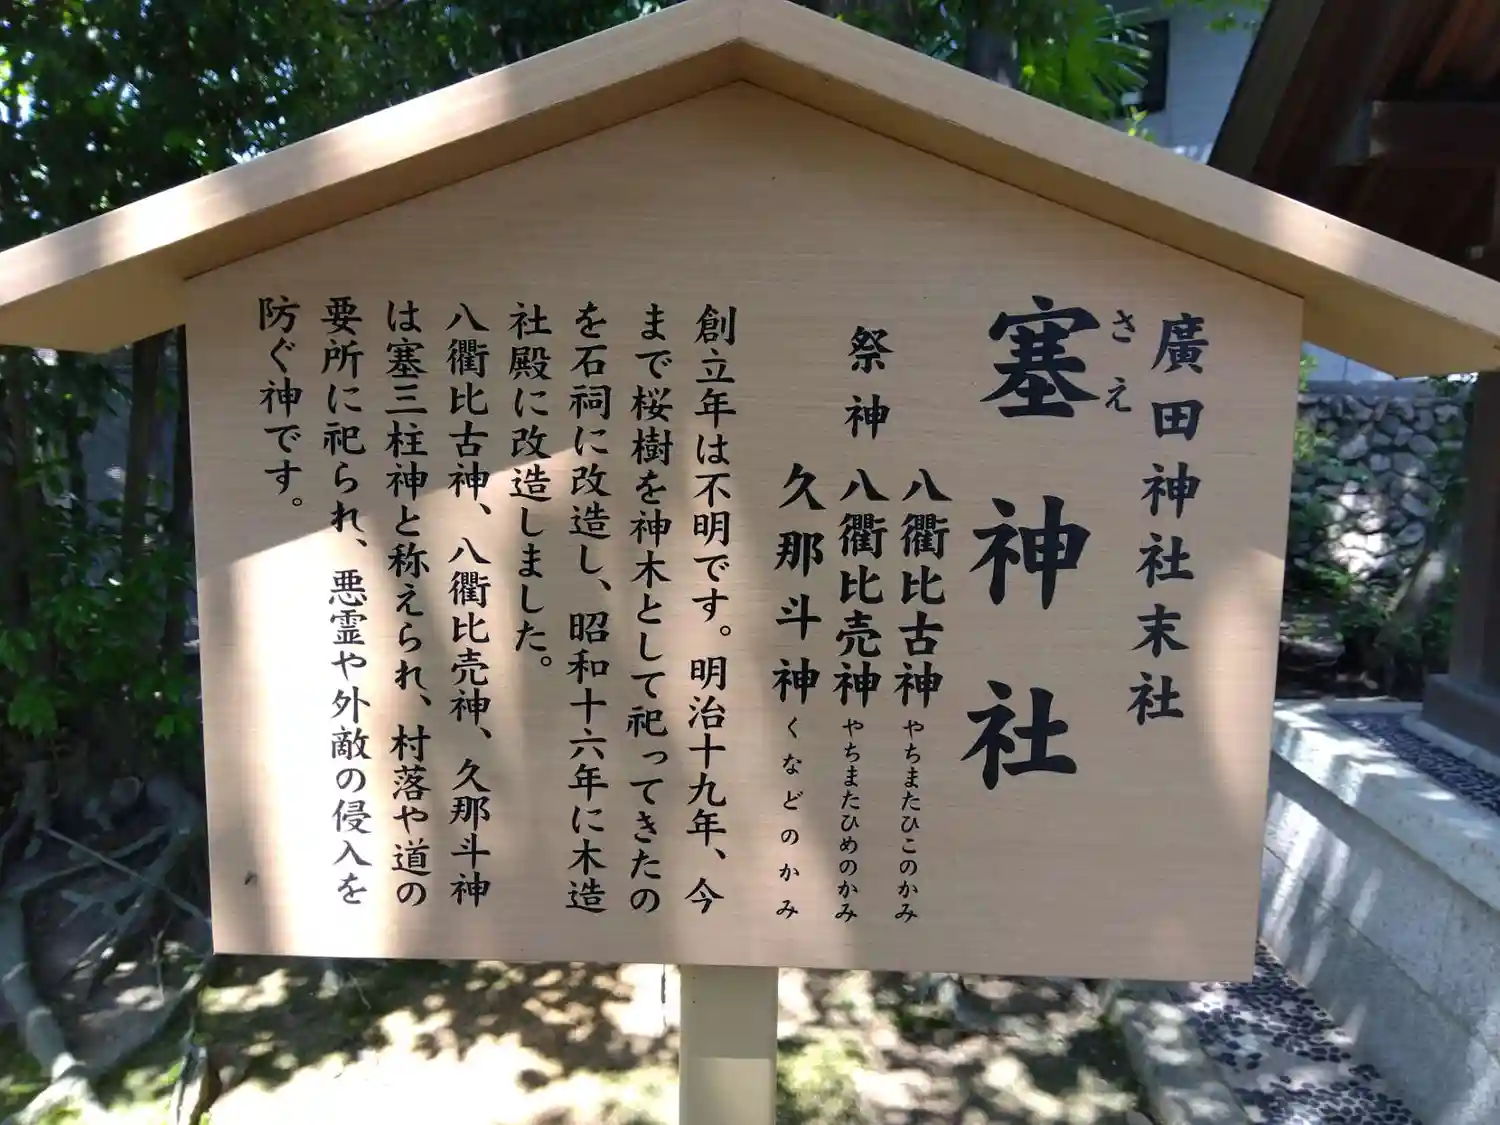 廣田神社末社
塞神社
さえ
祭神
八衢比古神 やちまたひこのかみ
八衢比売神 やちまたひめのかみ
久那斗神 くなどのかみ
創立年は不明です。明治十九年、今
まで桜樹を神木として祀ってきたの
を石祠に改造し、昭和十六年に木造
社殿に改造しました。
八衢比古神、八衢比売神、久那斗神
は塞三柱神と称えられ、村落や道の
要所に祀られ、悪霊や外敵の侵入を
防ぐ神です。